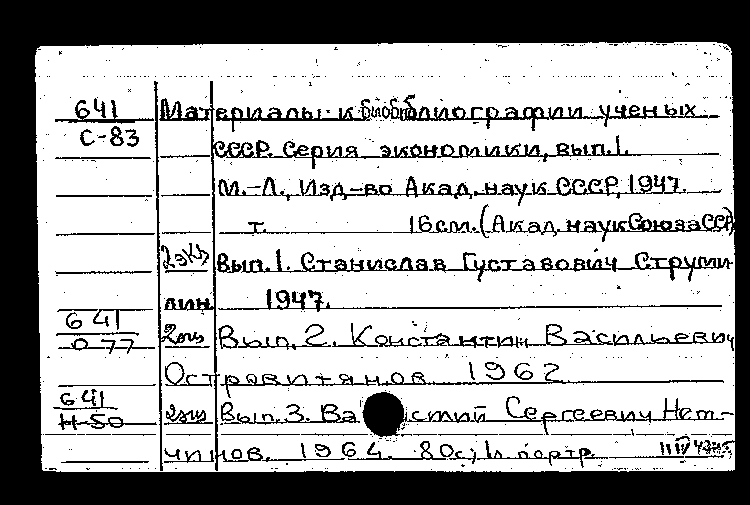 641 Материалы к библиографии ученых
С-83 СССР. Серия экономики, вып. 1.
М.-Л., Изд-во Акад. наук СССР, 1947.
т. 16см. (Акад. наук Союза ССР)
2экз Вып. 1. Станислав Густавович Струми-
лин. 1947.
641 2экз Вып. 2. Константин Васильевич
О-77 Островитянов 1962
641 2экз Вып. 3. Ва стий Сергеевич Нем-
Н-50 чинов. 1964. 80с; 1л. портр.